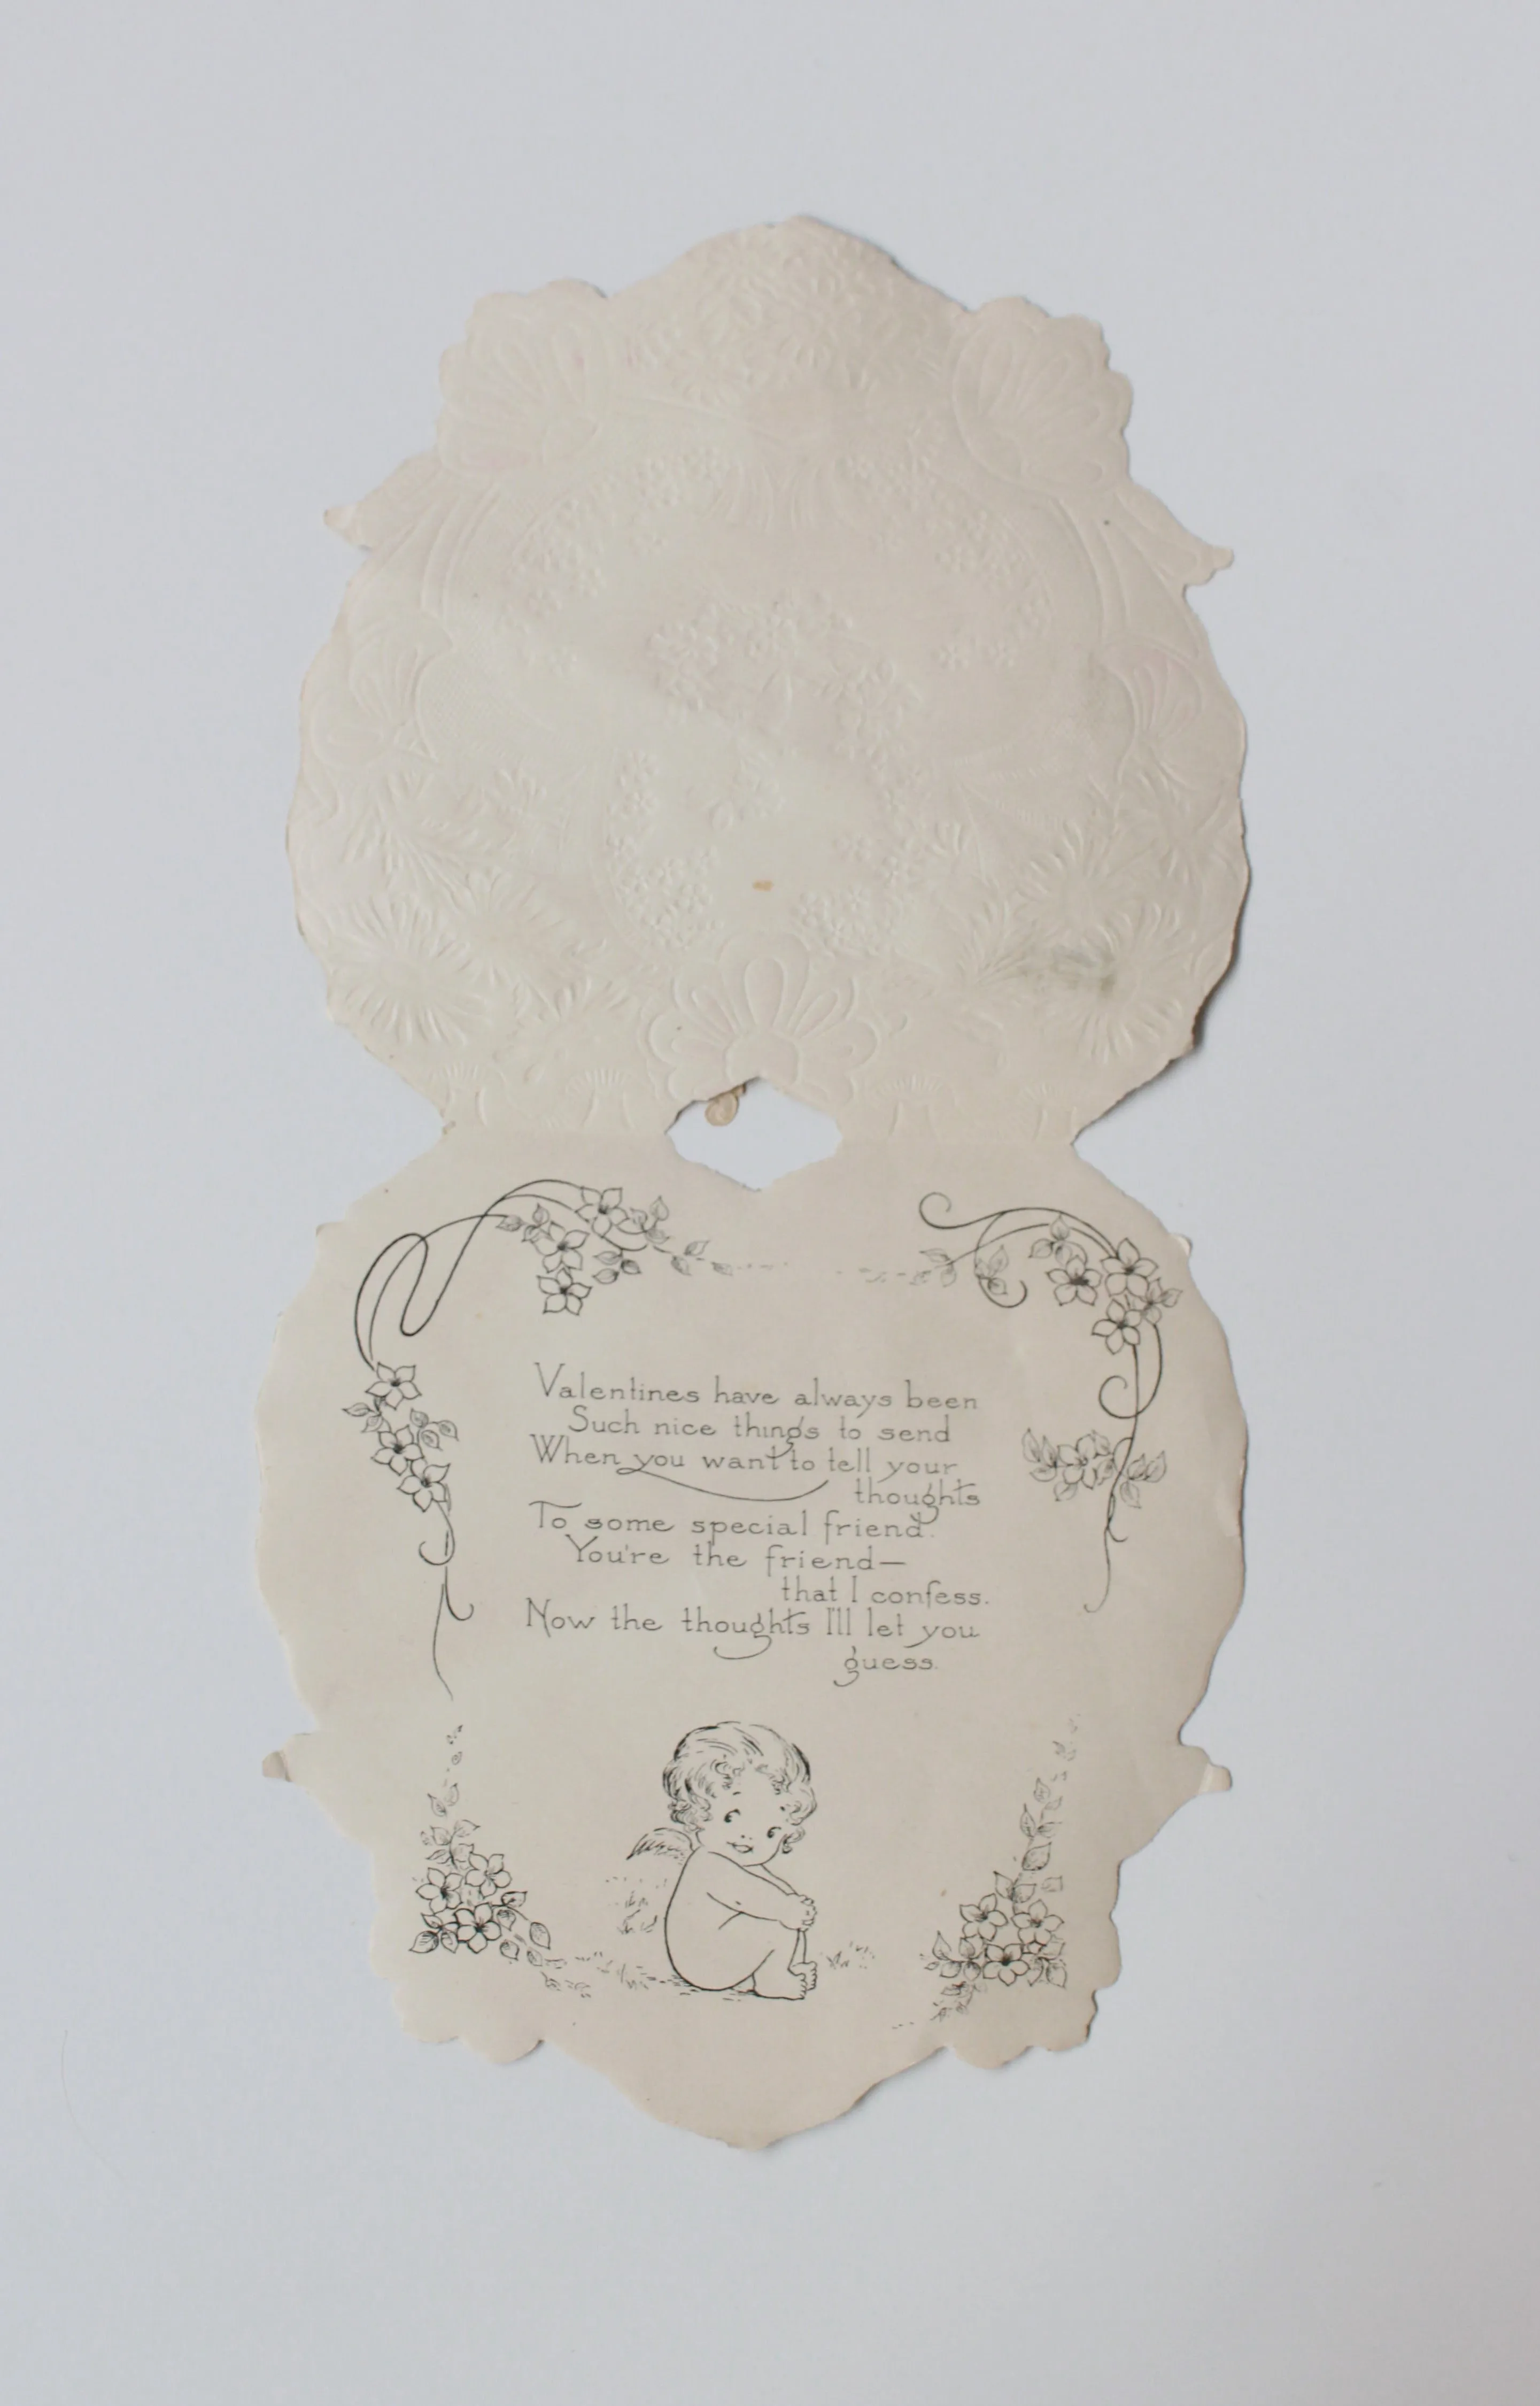 Valentines have always been
Such nice things to send
When you want to tell your
thoughts
To some special friend.
You're the friend—
that I confess.
Now the thoughts I'll let you
guess.